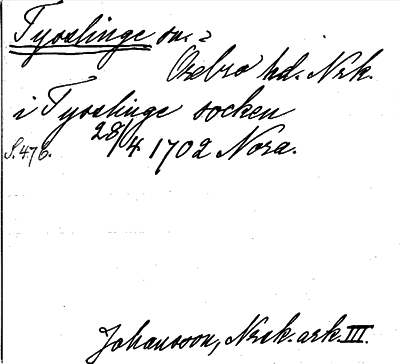 Tysslinge sn. 2
Örebro hd. Nrk.
i Tysslinge socken
S. 476. 28/4 1702 Nora.
Johansson, Nrk. ark. III.